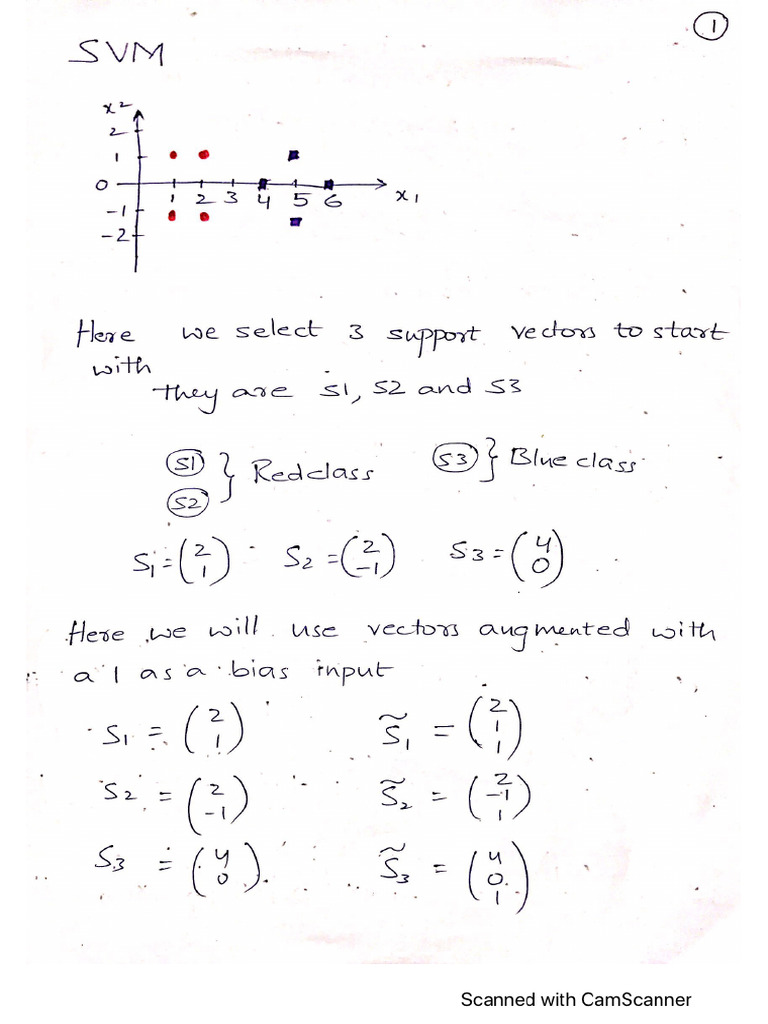 1
SVM
x2
2
1
0
1 2 3 4 5 6
x1
-1
-2
Here we select 3 support vectors to start
with
they are s1, s2 and s3
S1 } Red class
S2
S3 } Blue class
S1 = (2 1) S2 = (2 -1) S3 = (4 0)
Here we will use vectors augmented with
a 1 as a bias input
S1 = (2 1) S̃1 = (2 1 1)
S2 = (2 -1) S̃2 = (2 -1 1)
S3 = (4 0) S̃3 = (4 0 1)
Scanned with CamScanner